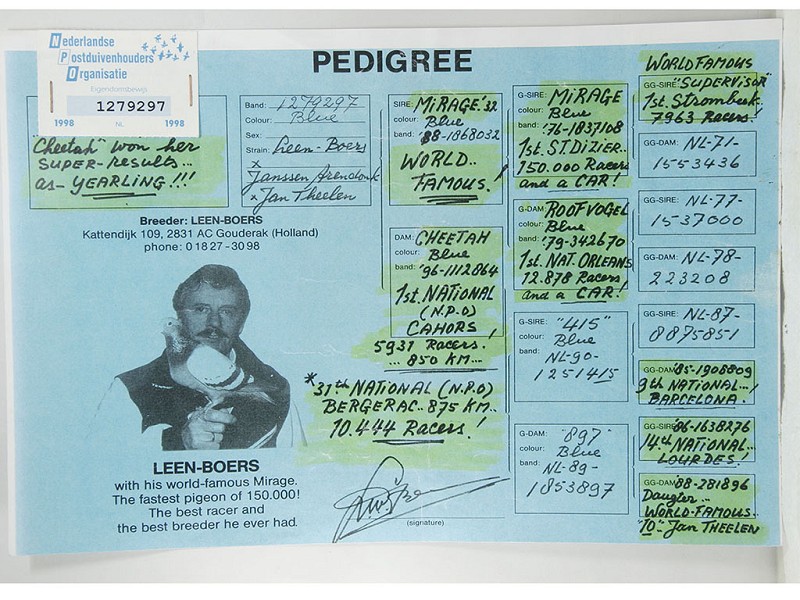 Nederlandse
Postduivenhouders
Organisatie
Eigendomsbewijs
1279297
1998 NL 1998
PEDIGREE
"Cheetah" won her
SUPER-results...
as- YEARLING!!!
Band: 1279297
Colour: Blue
Sex:
Strain: Leen-Boers
x
Janssen Arendonk
x Jan Theelen
Breeder: LEEN-BOERS
Kattendijk 109, 2831 AC Gouderak (Holland)
phone: 0 18 27 - 30 98
LEEN-BOERS
with his world-famous Mirage.
The fastest pigeon of 150.000!
The best racer and
the best breeder he ever had.
SIRE: MIRAGE '32
colour: Blue
band: '88-1868032
WORLD..
FAMOUS!
DAM: CHEETAH
colour: Blue
band: '96-1112864
1st. NATIONAL
(N.P.O)
CAHORS!
5931 Racers.
... 850 KM...
*31th NATIONAL (N.P.O)
BERGERAC.. 875 KM..
10.444 Racers!
(signature)
G-SIRE: MIRAGE
colour: Blue
band: '76-1837108
1st. ST DIZIER.
150.000 Racers
and a CAR!
G-DAM: ROOFVOGEL
colour: Blue
band: '79-342670
1st. NAT. ORLEANS
12.878 Racers
and a CAR!
G-SIRE: "415"
colour: Blue
band: NL-90-
1251415
G-DAM: "897"
colour: Blue
band: NL-89-
1853897
WORLDFAMOUS
GG-SIRE: "SUPERVISOR"
1st. Strombeek
7963 Racers!
GG-DAM: NL-71-
1553436
GG-SIRE: NL-77-
1537000
GG-DAM: NL-78-
223208
GG-SIRE: NL-87-
8875851
GG-DAM: '85-1908809
9th NATIONAL...
BARCELONA!
GG-SIRE: '86-1638276
14th NATIONAL..
LOURDES!
GG-DAM: '88-281896
Daugter...
WORLD-FAMOUS..
"10"- Jan THEELEN